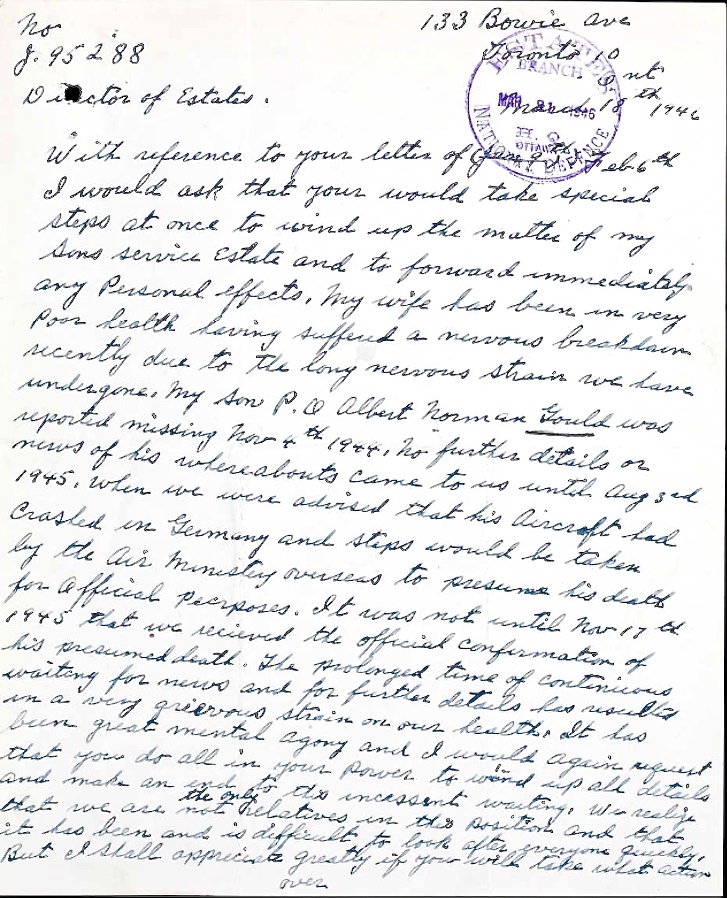 No
J. 95288
133 Bowie Ave
Toronto 10
Ont
March 18th 1946
Director of Estates.
ESTATES
BRANCH
MAR 21 1946
OTTAWA
NATIONAL DEFENCE
With reference to your letter of Feb 6th
I would ask that your would take special
steps at once to wind up the matter of my
Sons service Estate and to forward immediately
any Personal effects. My wife has been in very
Poor health having suffered a nervous breakdown
recently due to the long nervous strain we have
undergone. My son P.O Albert Norman Gould was
reported missing Nov 4th 1944. No further details or
news of his whereabouts came to us until Aug 3rd
1945. When we were advised that his Aircraft had
Crashed in Germany and steps would be taken
by the Air Ministry overseas to presume his death
for Official Pecrposes. It was not until Nov 17th
1945 that we recieved the official confirmation of
his presumed death. The prolonged time of continuous
waiting for news and for further details has resulted
in a very greevous strain on our health. It has
been great mental agony and I would again request
that you do all in your power to wind up all details
and make an end to the incessent waiting. We realize
that we are not the only relatives in this position and that
it has been and is difficult to look after everyone quickly.
But I shall appreciate greatly if you will take what action
over